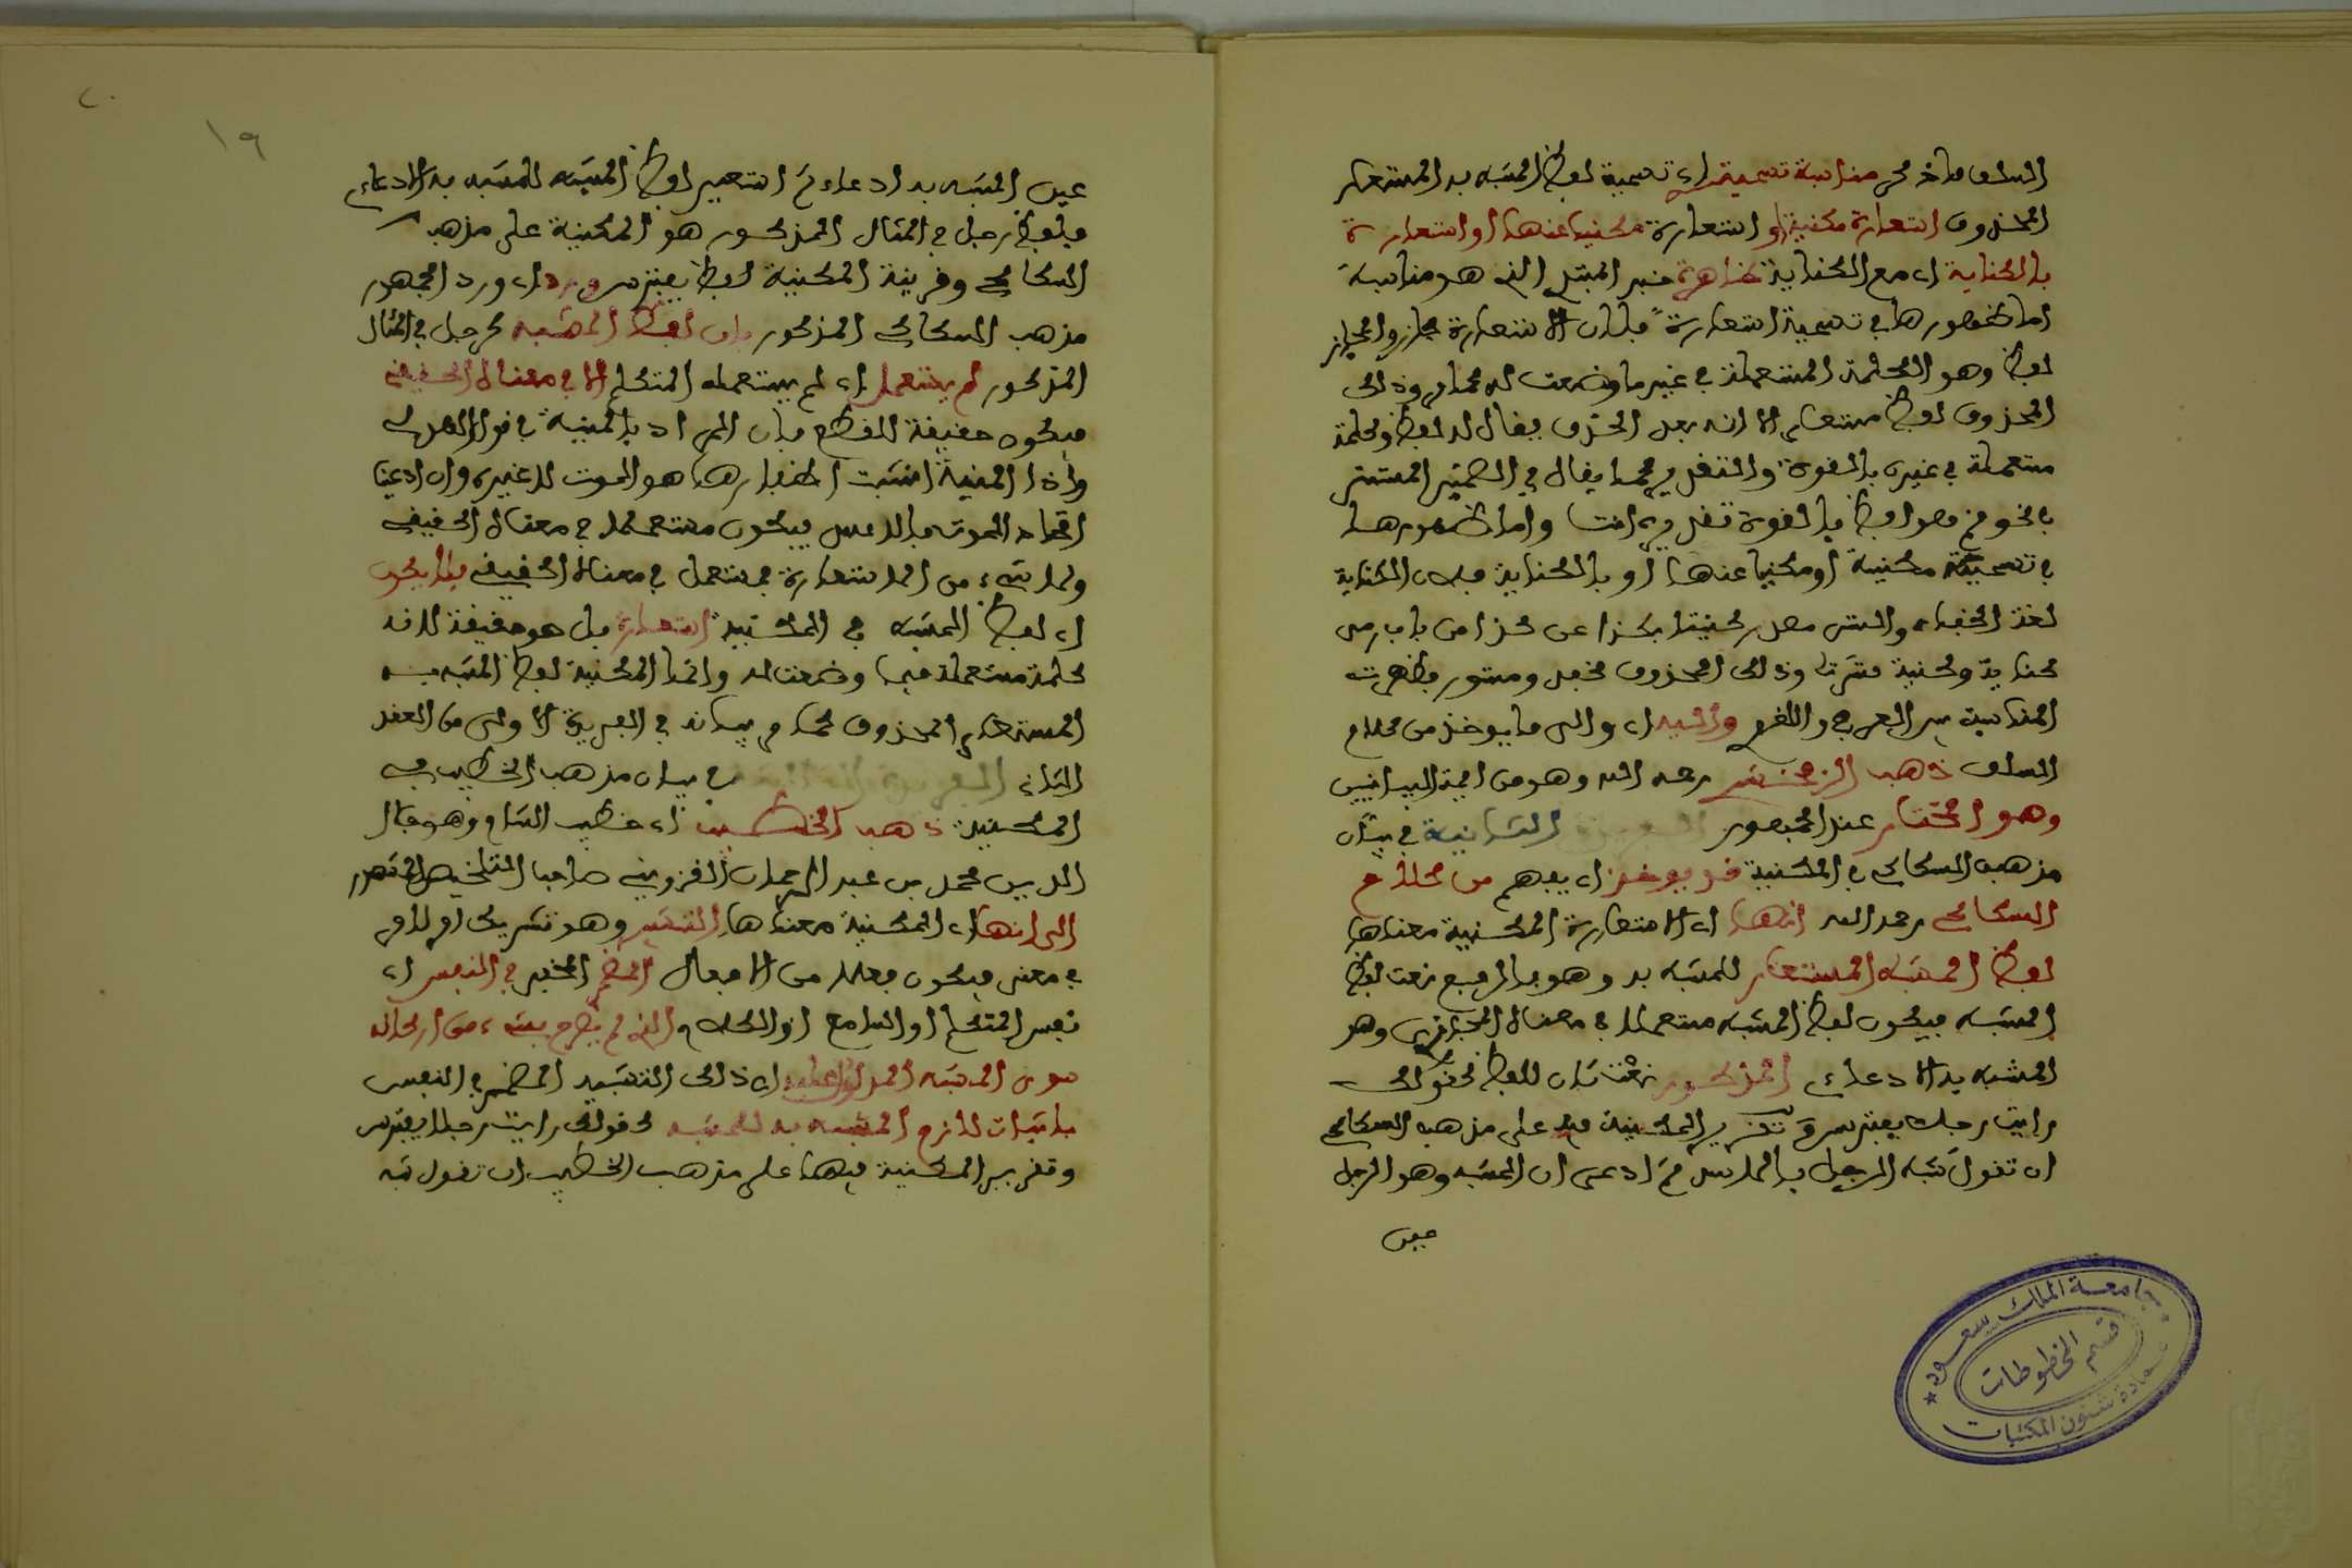 السلف ماخذ كم مناسبة تسميته اي تسمية لفظ المشبه به المستعار
المحذوف استعارة مكنية او استعارة مكنيا عنها او استعارة
بالكناية اي مع الكناية ظاهرة خبر المبتدإ الذي هو مناسبة
اما ظهورها في تسمية استعارة فلان الاستعارة مجاز والمجاز
لفظ وهو الكلمة المستعملة في غير ما وضعت له كما مر وذلك
المحذوف لفظ مستعار الا انه بعد الحذف يقال له لفظ وكلمة
مستعملة في غيره بالقوة والتقدير كما يقال في الضمير المستتر
في نحو قم هو لفظ بالقوة تقديره انت واما ظهورها
في تسمية مكنية او مكنيا عنها او بالكناية فلان الكناية
لغة الخفاء والستر مصدر كنيت بكذا عن كذا من باب رمى
كناية وكنية سترت وذلك المحذوف مخفي ومستور فظهرت
المناسبة بين العرفي واللغوي واليه اي والى ما يوخذ من كلام
السلف ذهب الزمخشري رحمه الله وهو من ايمة البيانيين
وهو المختار عند الجمهور الفريدة الثانية في بيان
مذهب السكاكي في المكنية قد يوخذ اي يفهم من كلام
السكاكي رحمه الله انها اي الاستعارة المكنية معناها
لفظ المشبه المستعار للمشبه به وهو بالرفع نعت لفظ
المشبه فيكون لفظ المشبه مستعملا في معناه المجازي وهو
المشبه به الادعاءي المذكور نعت ثان للفظ كقولك
رايت رجلا يفترس وتقرير المكنية فيه على مذهب السكاكي
ان تقول شبه الرجل بالاسد ثم ادعى ان المشبه وهو الرجل
عين
٢٠
١٩
عين المشبه به ادعاء ثم استعير لفظ المشبه للمشبه به الادعاءي
فلفظ رجل في المثال المذكور هو المكنية على مذهب
السكاكي وقرينة المكنية لفظ يفترس ورد اي ورد الجمهور
مذهب السكاكي المذكور بان لفظ المشبه كرجل في المثال
المذكور لم يستعمل اي لم يستعمله المتكلم الا في معناه الحقيقي
فيكون حقيقة للقطع بان المراد بالمنية في قول الهذلي
واذا المنية انشبت اظفارها هو الموت لا غيره وان ادعينا
اتحاد الموت بالاسد فيكون مستعملا في معناه الحقيقي
ولا شيء من الاستعارة بمستعمل في معناه الحقيقي فلا يكون
اي لفظ المشبه في المكنية استعارة بل هو حقيقة لانه
كلمة مستعملة فيما وضعت له وانما المكنية لفظ المشبه به
المستعار المحذوف كما مر بيانه في الفريدة الاولى من العقد
الثاني الفريدة الثالثة في بيان مذهب الخطيب في
المكنية ذهب الخطيب اي خطيب الشام وهو جلال
الدين محمد بن عبد الرحمان القزويني صاحب التلخيص المشهور
الى انها اي المكنية معناها التشبيه وهو تشريك امر لامر
في معنى فيكون فعلا من الافعال المضمر المخفي في النفس اي
نفس المتكلم او السامع او الكلام الذي لم يصرح بشيء من اركانه
سوى المشبه المدلول عليه اي ذلك التشبيه المضمر في النفس
باثبات لازم المشبه به للمشبه كقولك رايت رجلا يفترس
وتقرير المكنية فيها على مذهب الخطيب ان تقول شبه
جامعة الملك سعود
قسم المخطوطات
عمادة شئون المكتبات